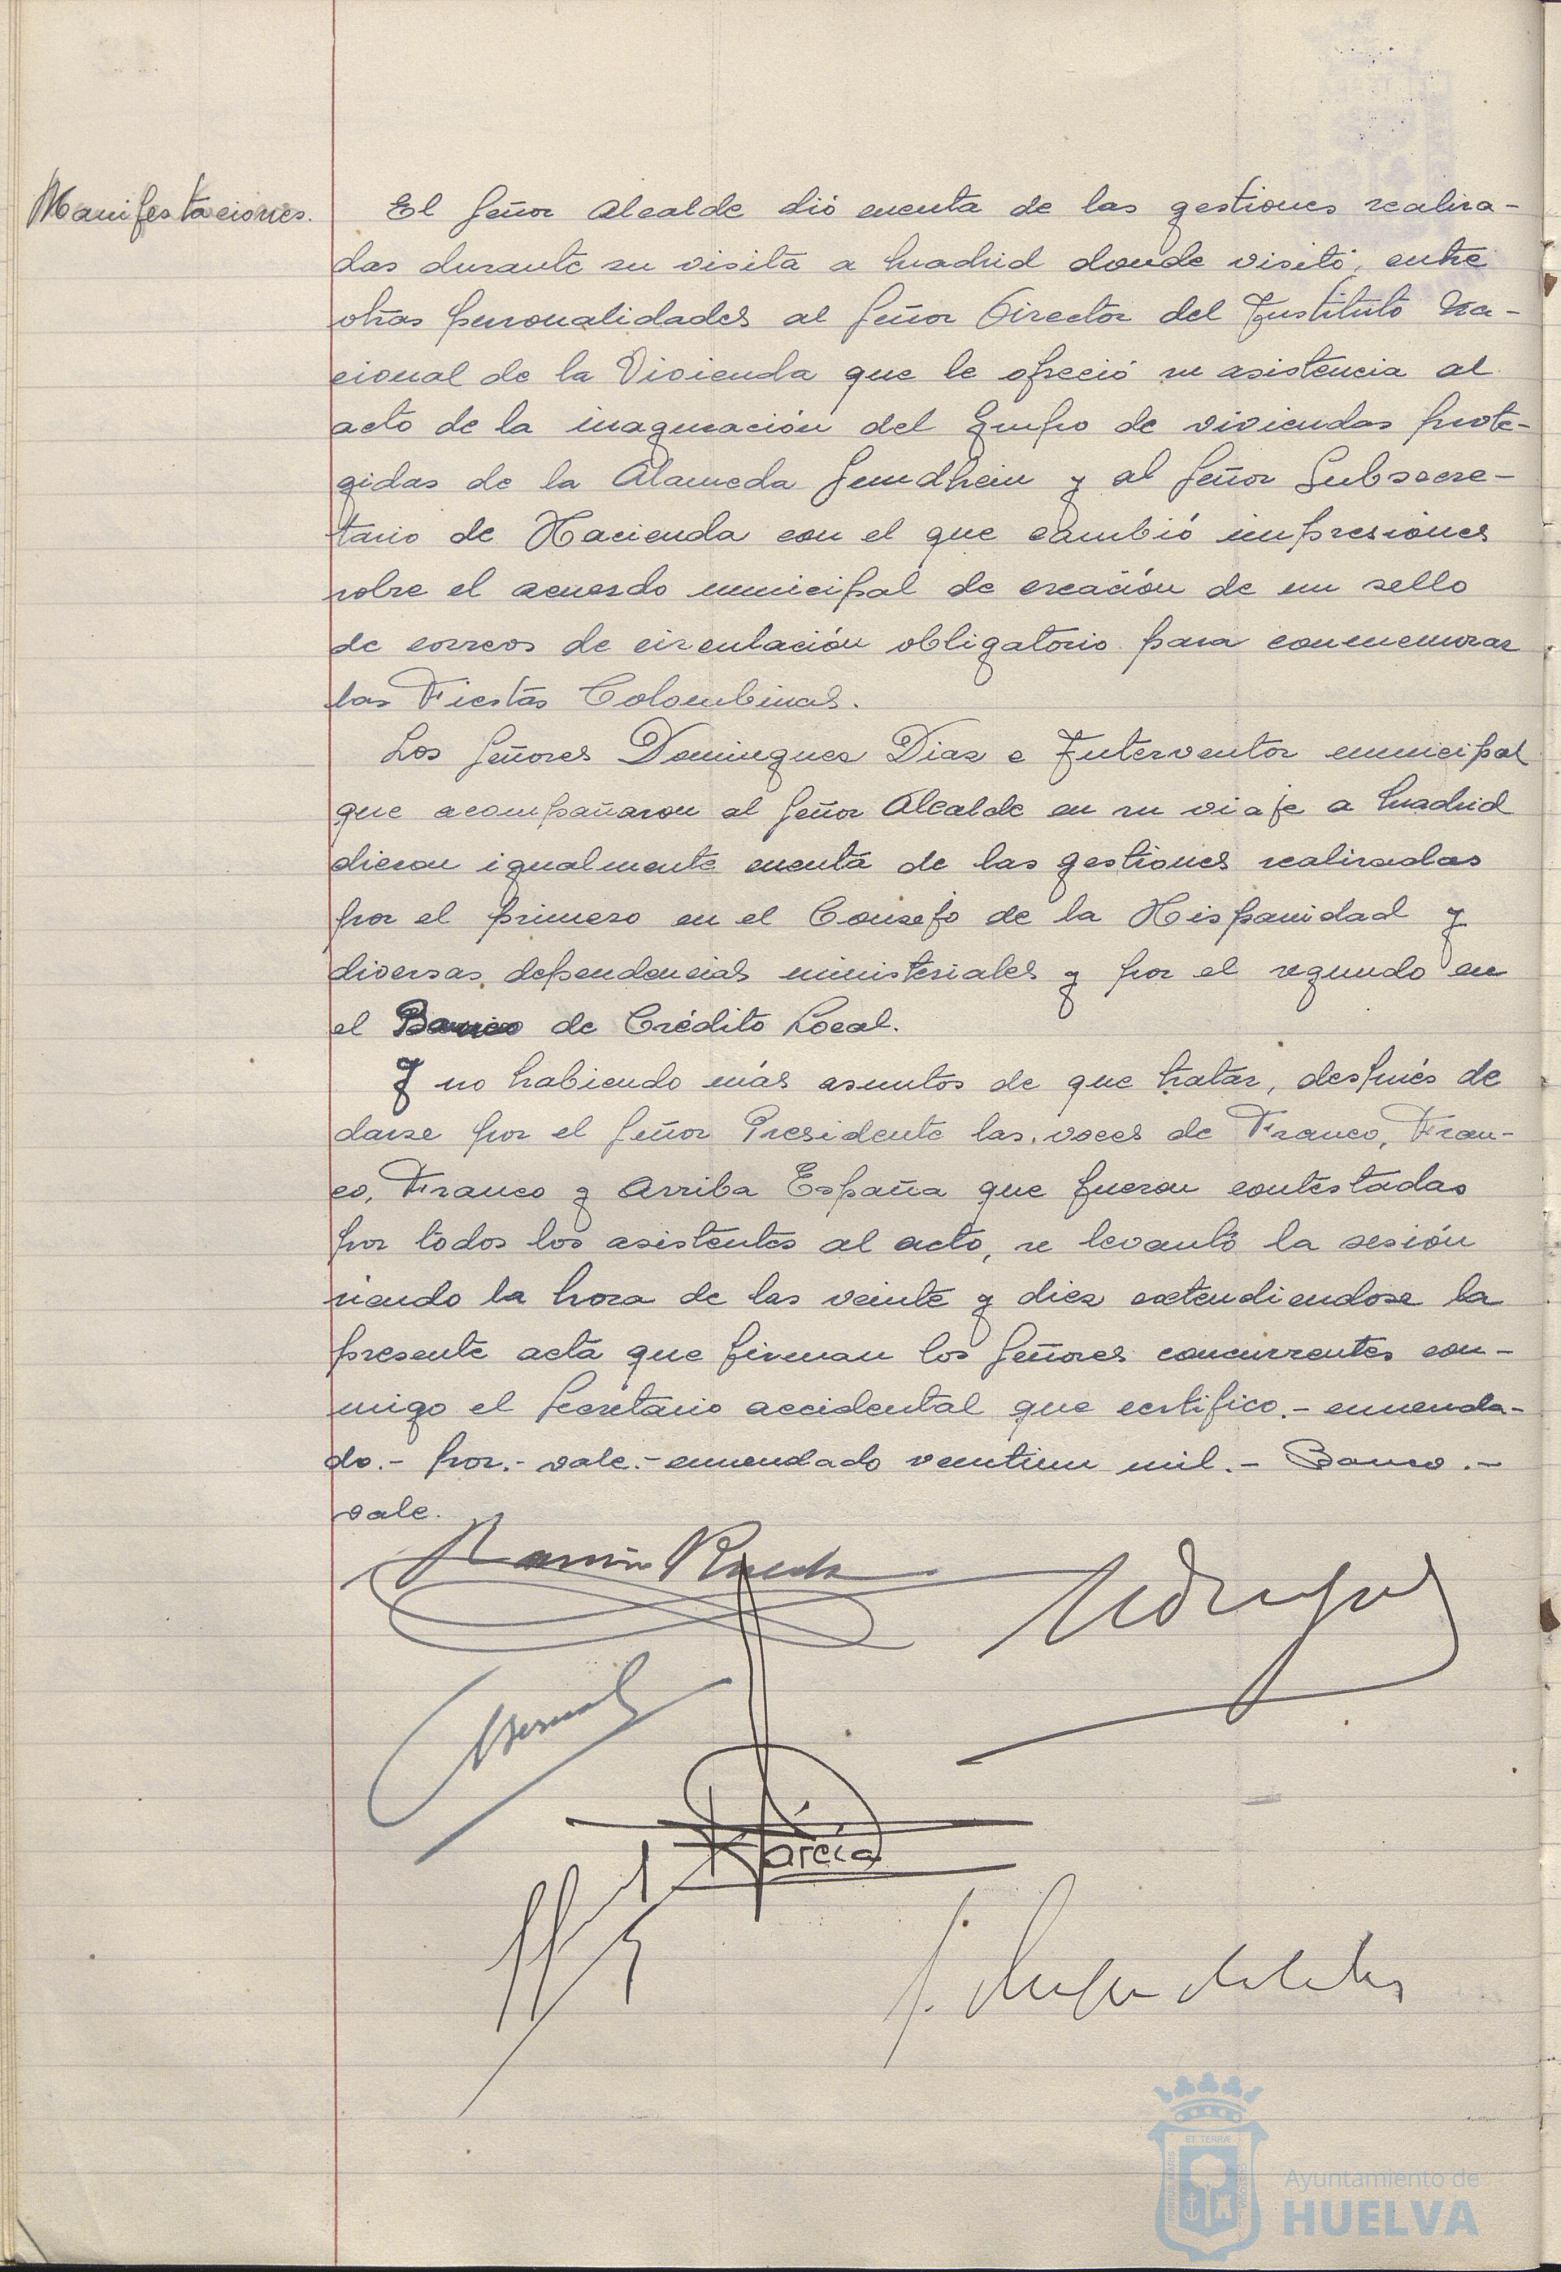 Manifestaciones.
El Señor Alcalde dió cuenta de las gestiones realiza-
das durante su visita a Madrid donde visitó, entre
otras personalidades al Señor Director del Instituto Na-
cional de la Vivienda que le ofreció su asistencia al
acto de la inaguración del Grupo de viviendas prote-
gidas de la Alameda Sundhein y al Señor Subsecre-
tario de Hacienda con el que cambió impresiones
sobre el acuerdo municipal de creación de un sello
de correos de circulación obligatorio para conmemorar
las Fiestas Colombinas.
Los Señores Dominguez Diaz e Interventor municipal
que acompañaron al Señor Alcalde en su viaje a Madrid
dieron igualmente cuenta de las gestiones realizadas
por el primero en el Consejo de la Hispanidad y
diversas dependencias ministeriales y por el segundo en
el Banco de Crédito Local.
Y no habiendo más asuntos de que tratar, después de
darse por el Señor Presidente las voces de Franco, Fran-
co, Franco y Arriba España que fueron contestadas
por todos los asistentes al acto, se levantó la sesión
siendo la hora de las veinte y diez extendiendose la
presente acta que firman los Señores concurrentes con-
migo el Secretario accidental que certifico.- enmenda-
do.- por.- vale.- enmendado veintiun mil.- Banco.-
vale.
Bernal
García
ET TERRÆ
Ayuntamiento de
HUELVA